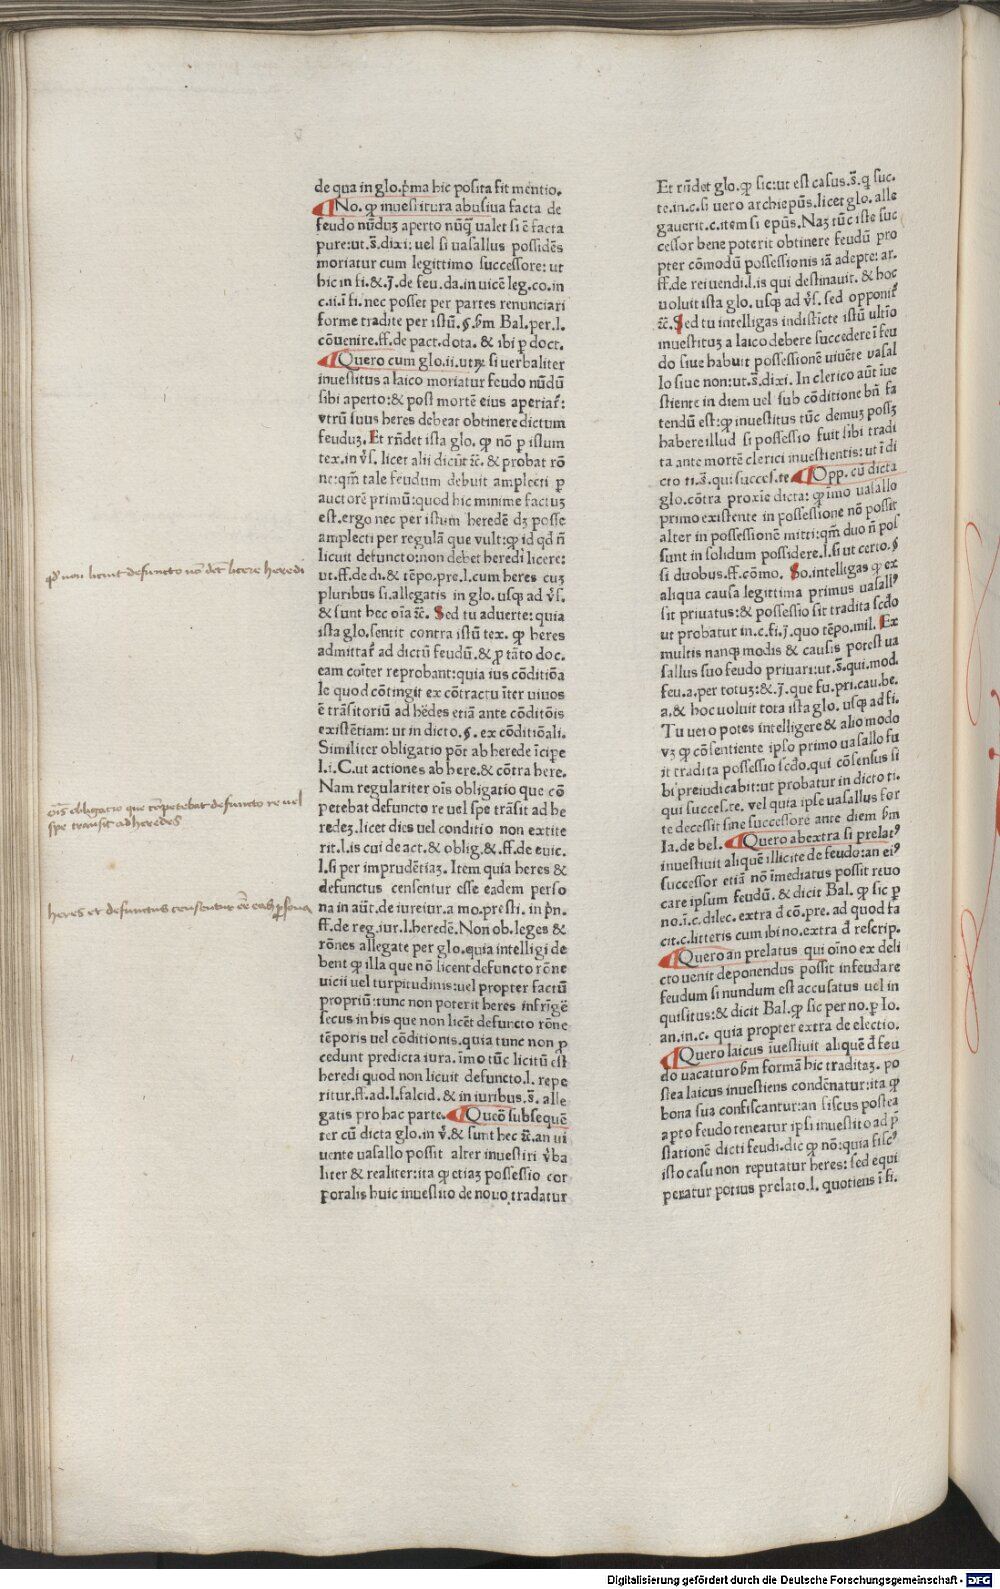 de qua in glo.p̃ma hic posita fit mentio.
¶No. ꝙ inuestitura abusiua facta de
feudo nũduꝫ aperto nũq̃ ualet si ẽ facta
pure:ut.s̃.dixi: uel si uasallus possidẽs
moriatur cum legittimo successore: ut
hic in fi.&.j̃.de feu.da.in uicẽ leg.co.in
c.ii.ĩ fi.nec posset per partes renunciari
forme tradite per istũ.§.ẜm Bal.per.l.
cõuenire.ff.de pact.dota. & ibi p̱ doct.
¶Quero cum glo.ii.utꝝ si uerbaliter
inuestitus a laico moriatur feudo nũdũ
sibi aperto:& post mortẽ eius aperiat̃:
vtrũ suus heres debeat obtinere dictum
feuduꝫ. Et rñdet ista glo. ꝙ nõ p̱ istum
tex.in v̉s. licet alii dicũt ⁊c̃. & probat rõ
ne:qm̃ tale feudum debuit amplecti p̱
auctorẽ primũ:quod hic minime factuꝫ
est.ergo nec per istum heredẽ dꝫ posse
amplecti per regulã que vult:ꝙ id qd̃ ñ
licuit defuncto:non debet heredi licere:
ut.ff.de di.& tẽpo.pre.l.cum heres cuꝫ
pluribus si.allegatis in glo. usqꝫ ad v̉s.
& sunt hec oĩa ⁊c̃. Sed tu aduerte: quia
ista glo.sentit contra istũ tex. ꝙ heres
admittat̃ ad dictũ feudũ.& p̱ tãto doc.
eam cõiter reprobant:quia ius cõditiõa
le quod cõtingit ex cõtractu ĩter uiuos
ẽ trãsitoriũ ad hẽdes etiã ante cõditõis
existẽtiam: ut in dicto.§. ex cõditiõali.
Similiter obligatio põt ab herede ĩcipe
l.i.C.ut actiones ab here.& cõtra here.
Nam regulariter oĩs obligatio que cõ
petebat defuncto re uel spe trãsit ad he
redeꝫ.licet dies uel conditio non extite
rit.l.is cui de act.& oblig.& .ff.de euic.
l.si per imprudẽtiaꝫ. Item quia heres &
defunctus censentur esse eadem perso
na in aũt.de iureiur.a mo.presti. in p̃n.
ff.de reg.iur.l.heredẽ. Non ob.leges &
rõnes allegate per glo.quia intelligi de
bent ꝙ illa que nõ licent defuncto rõne
uicii uel turpitudinis:uel propter factũ
propriũ:tunc non poterit heres infrĩgẽ
secus in his que non licẽt defuncto rõne
tẽporis uel cõditionis.quia tunc non p̱
cedunt predicta iura.ĩmo tũc licitũ est
heredi quod non licuit defuncto.l. repe
ritur.ff.ad.l.falcid.& in iuribus.s̃. alle
gatis pro hac parte.¶Queõ subsequẽ
ter cũ dicta glo.in v̉.& sunt hec ⁊c̃.an ui
uente uasallo possit alter inuestiri v̉ba
liter & realiter:ita ꝙ etiaꝫ possessio cor
poralis huic inuestito de nouo tradatur
Et rñdet glo.ꝙ sic:ut est casus.s̃.q̃ suc.
te.in.c.si uero archiepũs.licet glo. alle
gauerit.c.item si epũs. Naꝫ tũc iste suc
cessor bene poterit obtinere feudũ pro
pter cõmodũ possessionis iã adepte: ar.
ff.de rei uendi.l.is qui destinauit. & hoc
uoluit ista glo. usqꝫ ad v̉s. sed opponit̃
⁊c̃. Sed tu intelligas indisticte istũ ultĩo
inuestituꝫ a laico debere succedere ĩ feu
do siue habuit possessionẽ uiuẽte uasal
lo siue non:ut.s̃.dixi. In clerico aũt ĩue
stiente in diem uel sub cõditione bñ fa
tendũ est:ꝙ inuestitus tũc demuꝫ possꝫ
habere illud si possessio fuit sibi tradi
ta ante mortẽ clerici inuestientis: ut ĩ di
cto ti.s̃.qui succes.te.¶Opp. cũ dicta
glo.cõtra proxie dicta: ꝙ imo uasallo
primo existente in possessione nõ possit
alter in possessionẽ mitti:qm̃ duo ñ pos
sunt in solidum possidere.l.si ut certo.§
si duobus.ff.cõmo. So.intelligas ꝙ ex
aliqua causa legittima primus uasall⁹
sit priuatus:& possessio sit tradita scd̃o
ut probatur in.c.fi.j̃.quo tẽpo.mil. Ex
multis nanqꝫ modis & causis potest ua
sallus suo feudo priuari:ut.s̃.qui.mod.
feu.a.per totuꝫ:& j̃.que fu.pri.cau.be.
a.& hoc uoluit tota ista glo. usqꝫ ad fi.
Tu uero potes intelligere & alio modo
vꝫ ꝙ cõsentiente ipso primo uasallo fu
it tradita possessio scd̃o.qui cõsensus si
bi preiudicabit:ut probatur in dicto ti.
qui succes.te. vel quia ipse uasallus for
te decessit sine successore ante diem ẜm
Ia.de bel. ¶Quero abextra si prelat⁹
inuestiuit aliquẽ illicite de feudo:an ei⁹
successor etiã nõ ĩmediatus possit reuo
care ipsum feudũ. & dicit Bal. ꝙ sic p̱
no.ĩ.c.dilec. extra d̃ cõ.pre. ad quod fa
cit.c.litteris cum ibi no.extra d̃ rescrip.
¶Quero an prelatus qui oĩno ex deli
cto uenit deponendus possit infeudare
feudum si nundum est accusatus uel in
quisitus:& dicit Bal.ꝙ sic per no.p̱ Io.
an.in.c. quia propter extra de electio.
¶Quero laicus ĩuestiuit aliquẽ d̃ feu
do uacaturo ẜm formã hic traditaꝫ. po
stea laicus inuestiens condẽnatur:ita ꝙ
bona sua confiscantur:an fiscus postea
apto feudo teneatur ipsi inuestito ad p̃
stationẽ dicti feudi.dic ꝙ nõ:quia fisc⁹
isto casu non reputatur heres: sed equi
peratur potius prelato.l. quotiens ĩ fi.
qd̃ non licuit defuncto nõ det̃ licere heredi
oĩs obligatio que cõpetebat defuncto re uel
spe transit ad heredes
heres et defunctus censentur eẽ eadẽ p̱sona
Digitalisierung gefördert durch die Deutsche Forschungsgemeinschaft - DFG